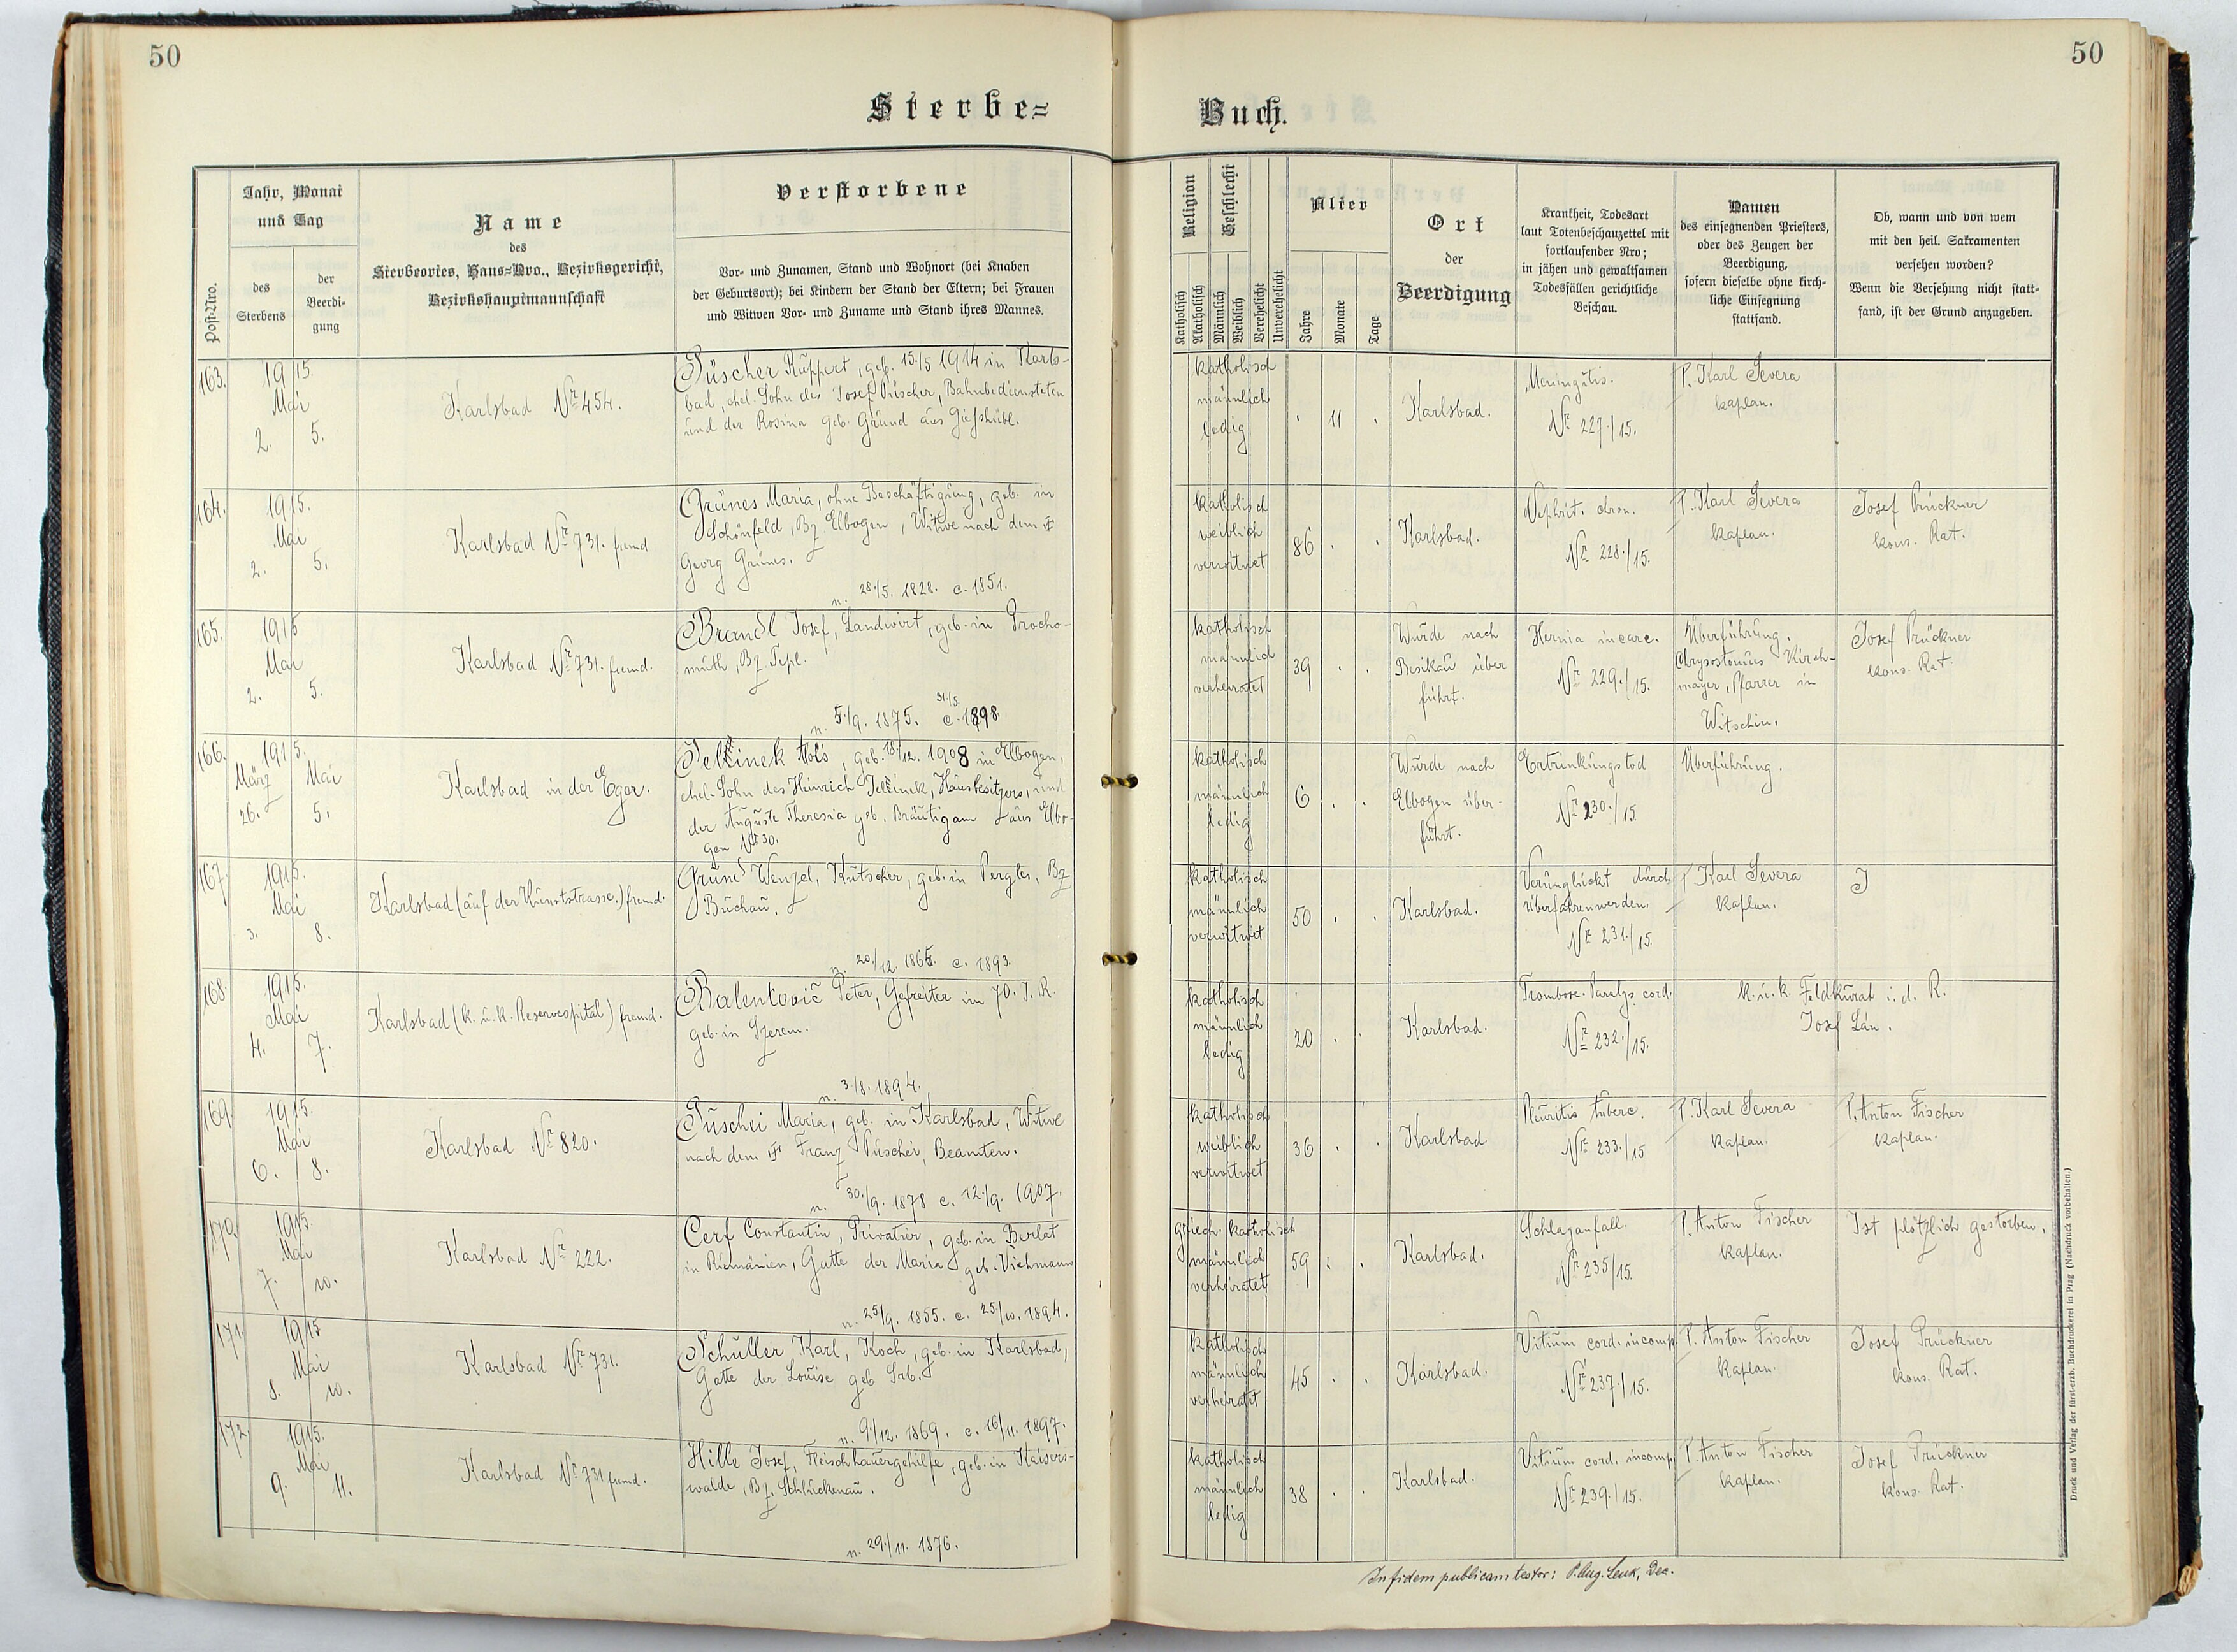 50
50
Sterbe=
Buch.
Post-Nro.
Jahr, Monat
und Tag
des
Sterbens
der
Beerdi-
gung
Name
des
Sterbeortes, Haus=Nro., Bezirksgericht,
Bezirkshauptmannschaft
Verstorbene
Vor- und Zunamen, Stand und Wohnort (bei Knaben
der Geburtsort); bei Kindern der Stand der Eltern; bei Frauen
und Witwen Vor- und Zuname und Stand ihres Mannes.
Religion
Katholisch
Akatholisch
Geschlecht
Männlich
Weiblich
Verehelicht
Unverehelicht
Alter
Jahre
Monate
Tage
Ort
der
Beerdigung
Krankheit, Todesart
laut Totenbeschauzettel mit
fortlaufender Nro;
in jähen und gewaltsamen
Todesfällen gerichtliche
Beschau.
Namen
des einsegnenden Priesters,
oder des Zeugen der
Beerdigung,
sofern dieselbe ohne kirch-
liche Einsegnung
stattfand.
Ob, wann und von wem
mit den heil. Sakramenten
versehen worden?
Wenn die Versehung nicht statt-
fand, ist der Grund anzugeben.
163.
1915
Mai
2. 5.
Karlsbad Nr 454.
Püscher Ruppert, geb. 15./5 1914 in Karls-
bad, ehel. Sohn des Josef Püscher, Bahnbediensteten
und der Rosina geb. Grund aus Giesshübl.
katholisch
männlich
ledig
11
Karlsbad.
Meningitis.
Nr 227./15.
P. Karl Severa
kaplan.
164.
1915.
Mai
2. 5.
Karlsbad Nr 731. fremd
Grünes Maria, ohne Beschäftigung, geb. in
Schönfeld, Bz. Elbogen, Witwe nach dem †
Georg Grünes.
n. 28./5. 1828. c. 1851.
katholisch
weiblich
verwitwet
86
Karlsbad.
Nephrit. chron.
Nr 228./15.
P. Karl Severa
kaplan.
Josef Prückner
kons. Rat.
165.
1915
Mai
2. 5.
Karlsbad Nr 731. fremd.
Brandl Josef, Landwirt, geb. in Procho-
muth, Bz Tepl.
n. 5./9. 1875. 31./5. c. 1898.
katholisch
männlich
verheiratet
39
Wurde nach
Besikau über
führt.
Hernia incarc.
Nr 229./15.
Überführung.
Chrysostomus Kirch-
mayer, Pfarrer in
Witschin.
Josef Prückner
kons. Rat.
166.
1915.
März Mai
26. 5.
Karlsbad in der Eger.
Jellinek Alois, geb. 18./12. 1908 in Elbogen,
ehel. Sohn des Heinrich Jellinek, Hausbesitzers, und
der Auguste Theresia geb. Bräutigam aus Elbo-
gen Nr 30.
katholisch
männlich
ledig
6
Wurde nach
Elbogen über-
führt.
Ertrinkungstod
Nr 230./15.
Überführung.
167
1915.
Mai
3. 8.
Karlsbad (auf der Kunststrasse.) fremd.
Grund Wenzel, Kutscher, geb. in Pergles, Bz
Buchau.
n. 20./12. 1865. c. 1893.
katholisch
männlich
verwitwet
50
Karlsbad.
Verunglückt durch
Überfahrenwerden.
Nr 231./15.
P. Karl Severa
kaplan.
J
168.
1915.
Mai
4. 7.
Karlsbad (k. u. k. Reservespital) fremd.
Balentović Peter, Gefreiter im 70. J. R.
geb. in Szerem.
n. 3./8. 1894.
katholisch
männlich
ledig
20
Karlsbad.
Trombose. Paralys. cord.
Nr 232./15.
k. u. k. Feldkurat i. d. R.
Josef Lán.
169.
1915.
Mai
6. 8.
Karlsbad Nr 820.
Puschei Maria, geb. in Karlsbad, Witwe
nach dem † Franz Puschei, Beamten.
n. 30./9. 1878 c. 12./9. 1907.
katholisch
weiblich
verwitwet
36
Karlsbad
Pleuritis tuberc.
Nr 233./15
P. Karl Severa
kaplan.
P. Anton Fischer
kaplan.
170.
1915.
Mai
7. 10.
Karlsbad Nr 222.
Cerf Constantin, Privatier, geb. in Berlat
in Rumänien, Gatte der Maria geb. Viehmann
n. 25/9. 1855. c. 25/10. 1894.
griech. katholisch
männlich
verheiratet
59
Karlsbad.
Schlaganfall.
Nr 235/15.
P. Anton Fischer
kaplan.
Ist plötzlich gestorben.
171.
1915
Mai
8. 10.
Karlsbad Nr 731.
Schuller Karl, Koch, geb. in Karlsbad,
Gatte der Louise geb Srb.
n. 9./12. 1869. c. 16/11. 1897.
katholisch
männlich
verheiratet
45
Karlsbad.
Vitium cord. incomp.
Nr 237./15.
P. Anton Fischer
kaplan.
Josef Prückner
kons. Rat.
172.
1915.
Mai
9. 11.
Karlsbad Nr 731 fremd.
Hille Josef, Fleischhauergehilfe, geb. in Kaisers-
walde, Bz. Schluckenau.
n. 29./11. 1876.
katholisch
männlich
ledig
38
Karlsbad.
Vitium cord. incomp.
Nr 239./15.
P. Anton Fischer
kaplan.
Josef Prückner
kons. Rat.
In fidem publicam testor: P. Aug. Lenk, Dec.
Druck und Verlag der fürst-erzb. Buchdruckerei in Prag (Nachdruck vorbehalten.)